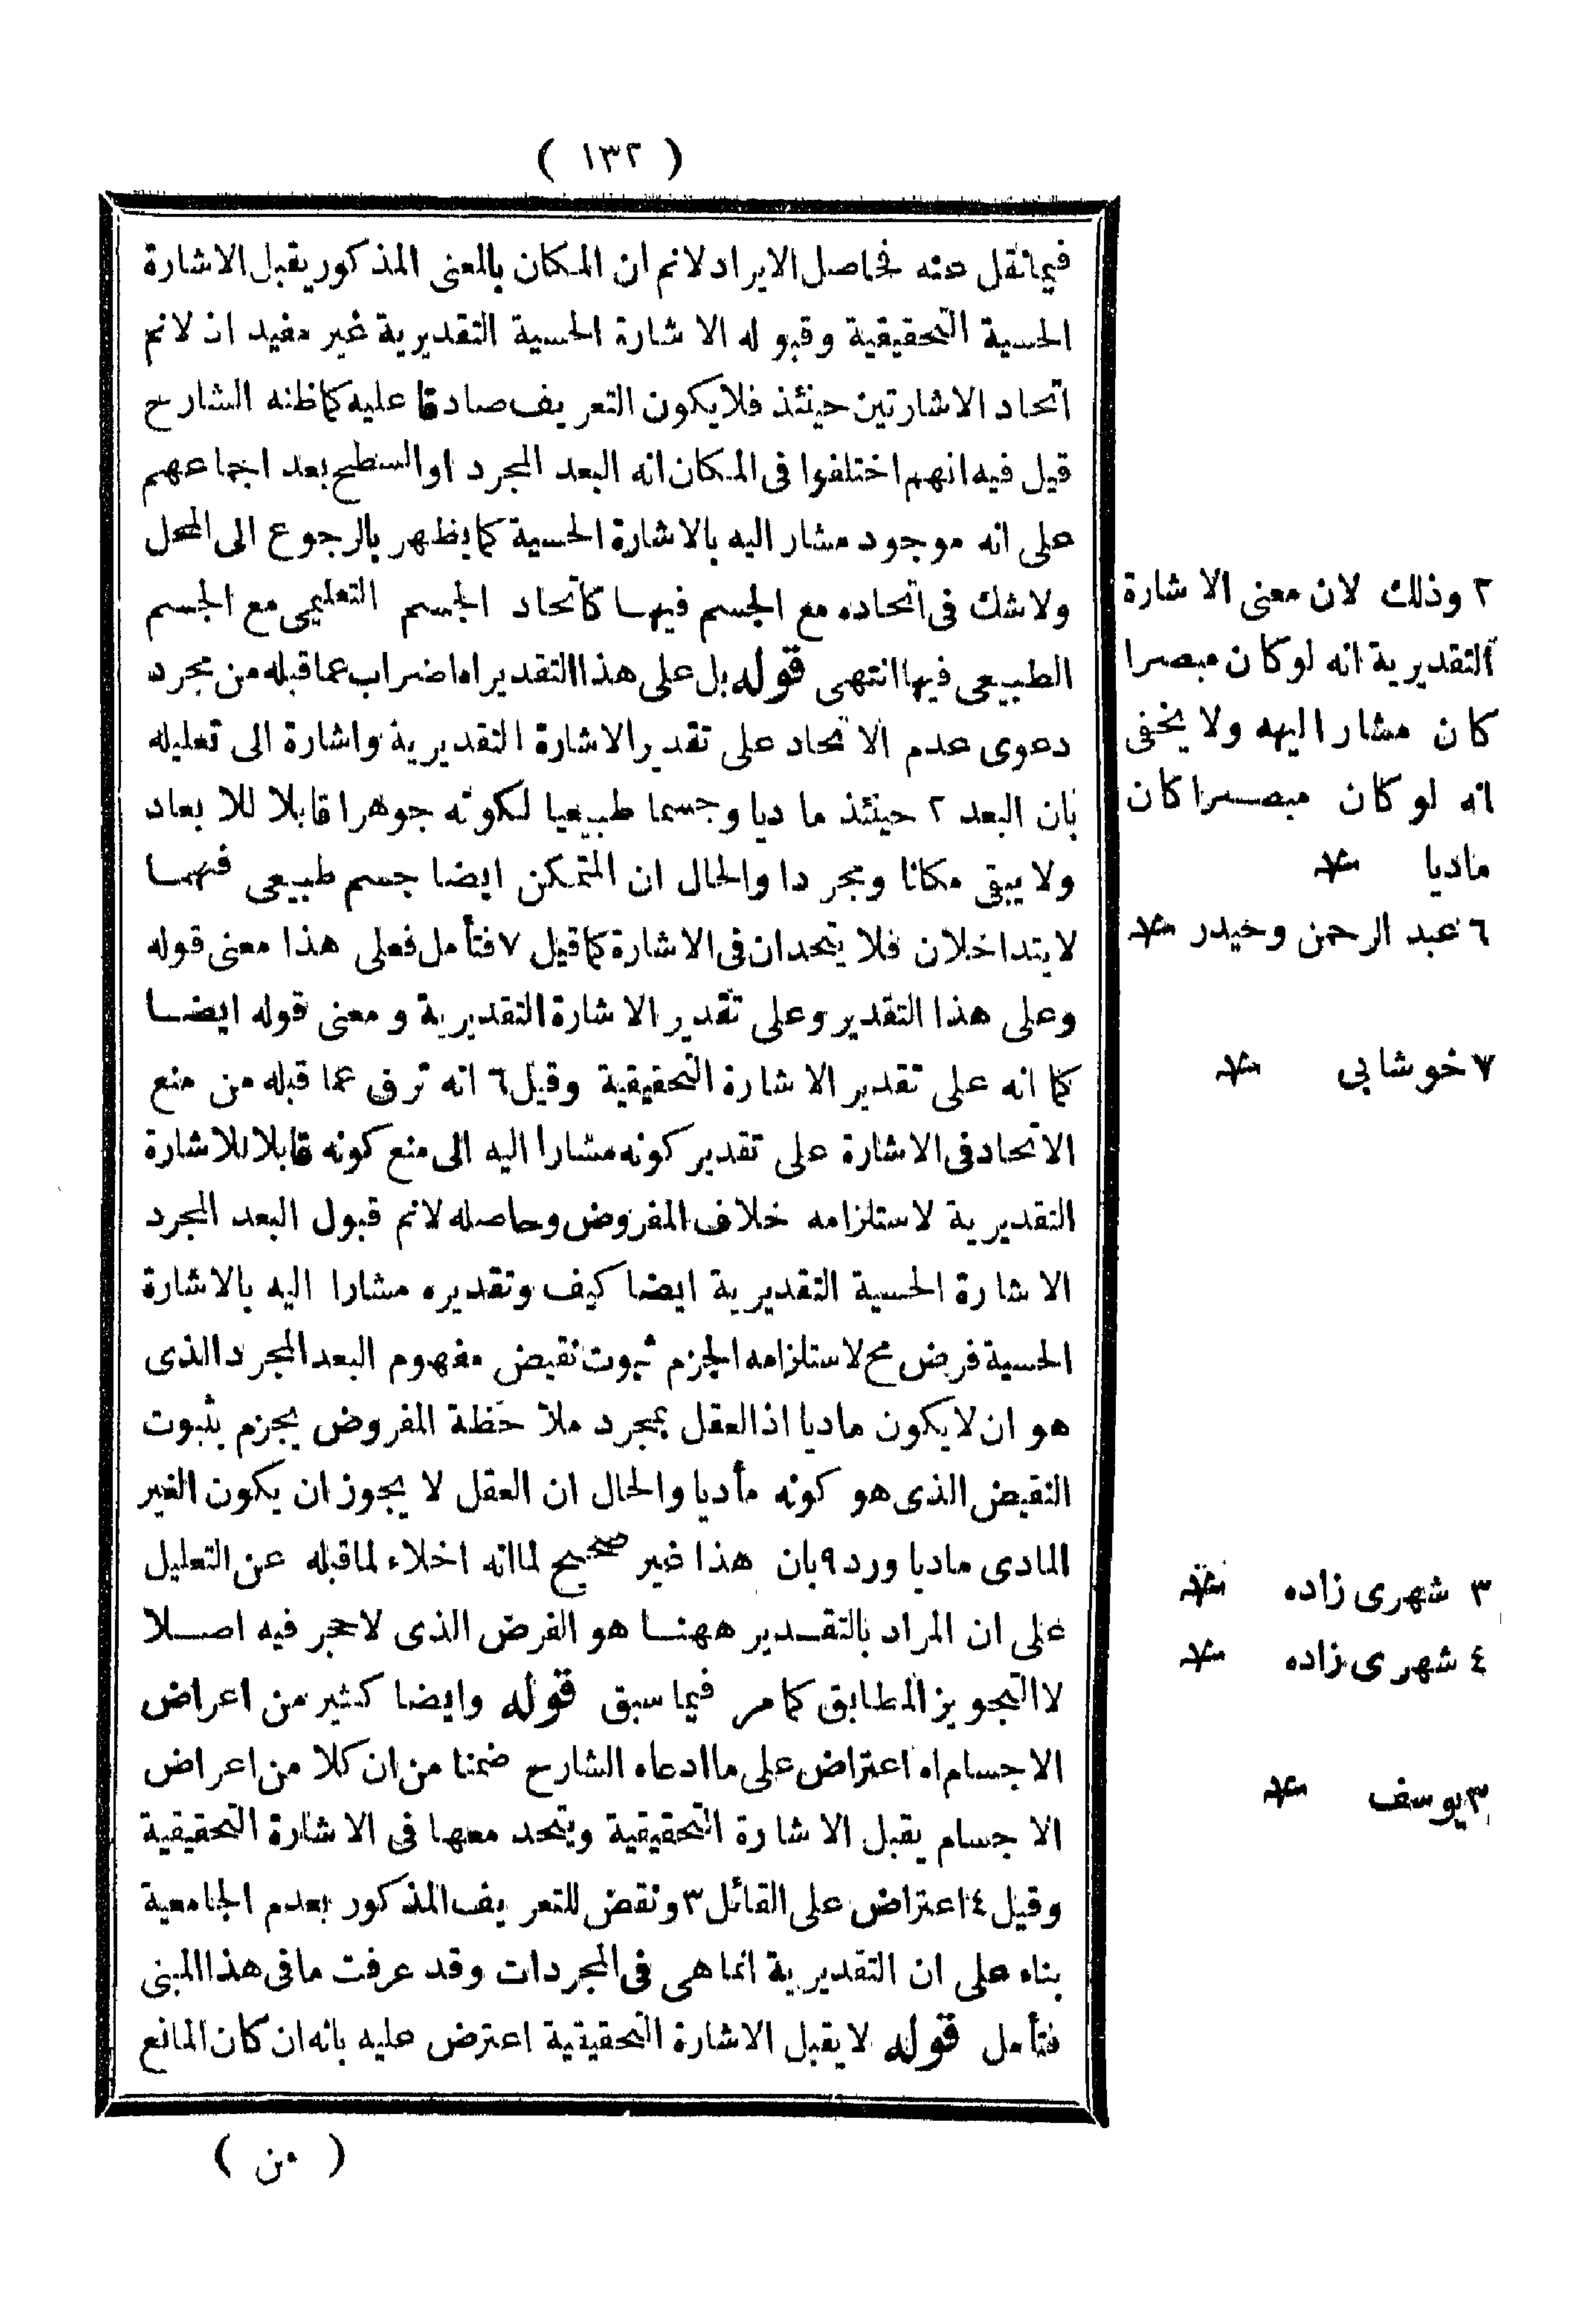 ( ١٣٢ )
فيما نقل عنه فحاصل الايراد لانم ان المكان بالمعنى المذكور يقبل الاشارة
الحسية التحقيقية وقبوله الاشارة الحسية التقديرية غير مفيد اذ لانم
اتحاد الاشارتين حينئذ فلا يكون التعريف صادقا عليه كما ظنه الشارح
قيل فيه انهم اختلفوا فى المكان انه البعد المجرد او السطح بعد اجماعهم
على انه موجود مشار اليه بالاشارة الحسية كما يظهر بالرجوع الى المحل
ولا شك فى اتحاده مع الجسم فيها كاتحاد الجسم التعليمى مع الجسم
الطبيعى فيها انتهى قوله بل على هذا التقدير اه اضراب عما قبله من مجرد
دعوى عدم الاتحاد على تقدير الاشارة التقديرية واشارة الى تعليله
بان البعد ٢ حينئذ ماديا وجسما طبيعيا لكونه جوهرا قابلا للابعاد
ولا يبقى مكانا ومجردا والحال ان المتمكن ايضا جسم طبيعى فهما
لا يتداخلان فلا يتحدان فى الاشارة كما قيل ٧ فتأمل فعلى هذا معنى قوله
وعلى هذا التقدير وعلى تقدير الاشارة التقديرية ومعنى قوله ايضا
كما انه على تقدير الاشارة التحقيقية وقيل ٦ انه ترق عما قبله من منع
الاتحاد فى الاشارة على تقدير كونه مشارا اليه الى منع كونه قابلا للاشارة
التقديرية لاستلزامه خلاف المفروض وحاصله لانم قبول البعد المجرد
الاشارة الحسية التقديرية ايضا كيف وتقديره مشارا اليه بالاشارة
الحسية فرض مح لاستلزامه الجزم ثبوت نقيض مفهوم البعد المجرد الذى
هو ان لا يكون ماديا اذ العقل بمجرد ملاحظة المفروض يجزم بثبوت
النقيض الذى هو كونه مأديا والحال ان العقل لا يجوز ان يكون الغير
المادى ماديا ورد ٩ بان هذا غير صحيح لما انه اخلاء لما قبله عن التعليل
على ان المراد بالتقدير ههنا هو الفرض الذى لا حجر فيه اصلا
لا التجويز المطابق كما مر فيما سبق قوله وايضا كثير من اعراض
الاجسام اه اعتراض على ما ادعاه الشارح ضمنا من ان كلا من اعراض
الاجسام يقبل الاشارة التحقيقية ويتحد معها فى الاشارة التحقيقية
وقيل ٤ اعتراض على القائل ٣ ونقض للتعريف المذكور بعدم الجامعية
بناء على ان التقديرية انما هى فى المجردات وقد عرفت ما فى هذا المبنى
فتأمل قوله لا يقبل الاشارة التحقيقية اعترض عليه بانه ان كان المانع
( من )
٢ وذلك لان معنى الاشارة
التقديرية انه لو كان مبصرا
كان مشارا اليه ولا يخفى
انه لو كان مبصرا كان
ماديا
٦ عبد الرحمن وحيدر
٧ خوشابى
٣ شهرى زاده
٤ شهرى زاده
٣ يوسف